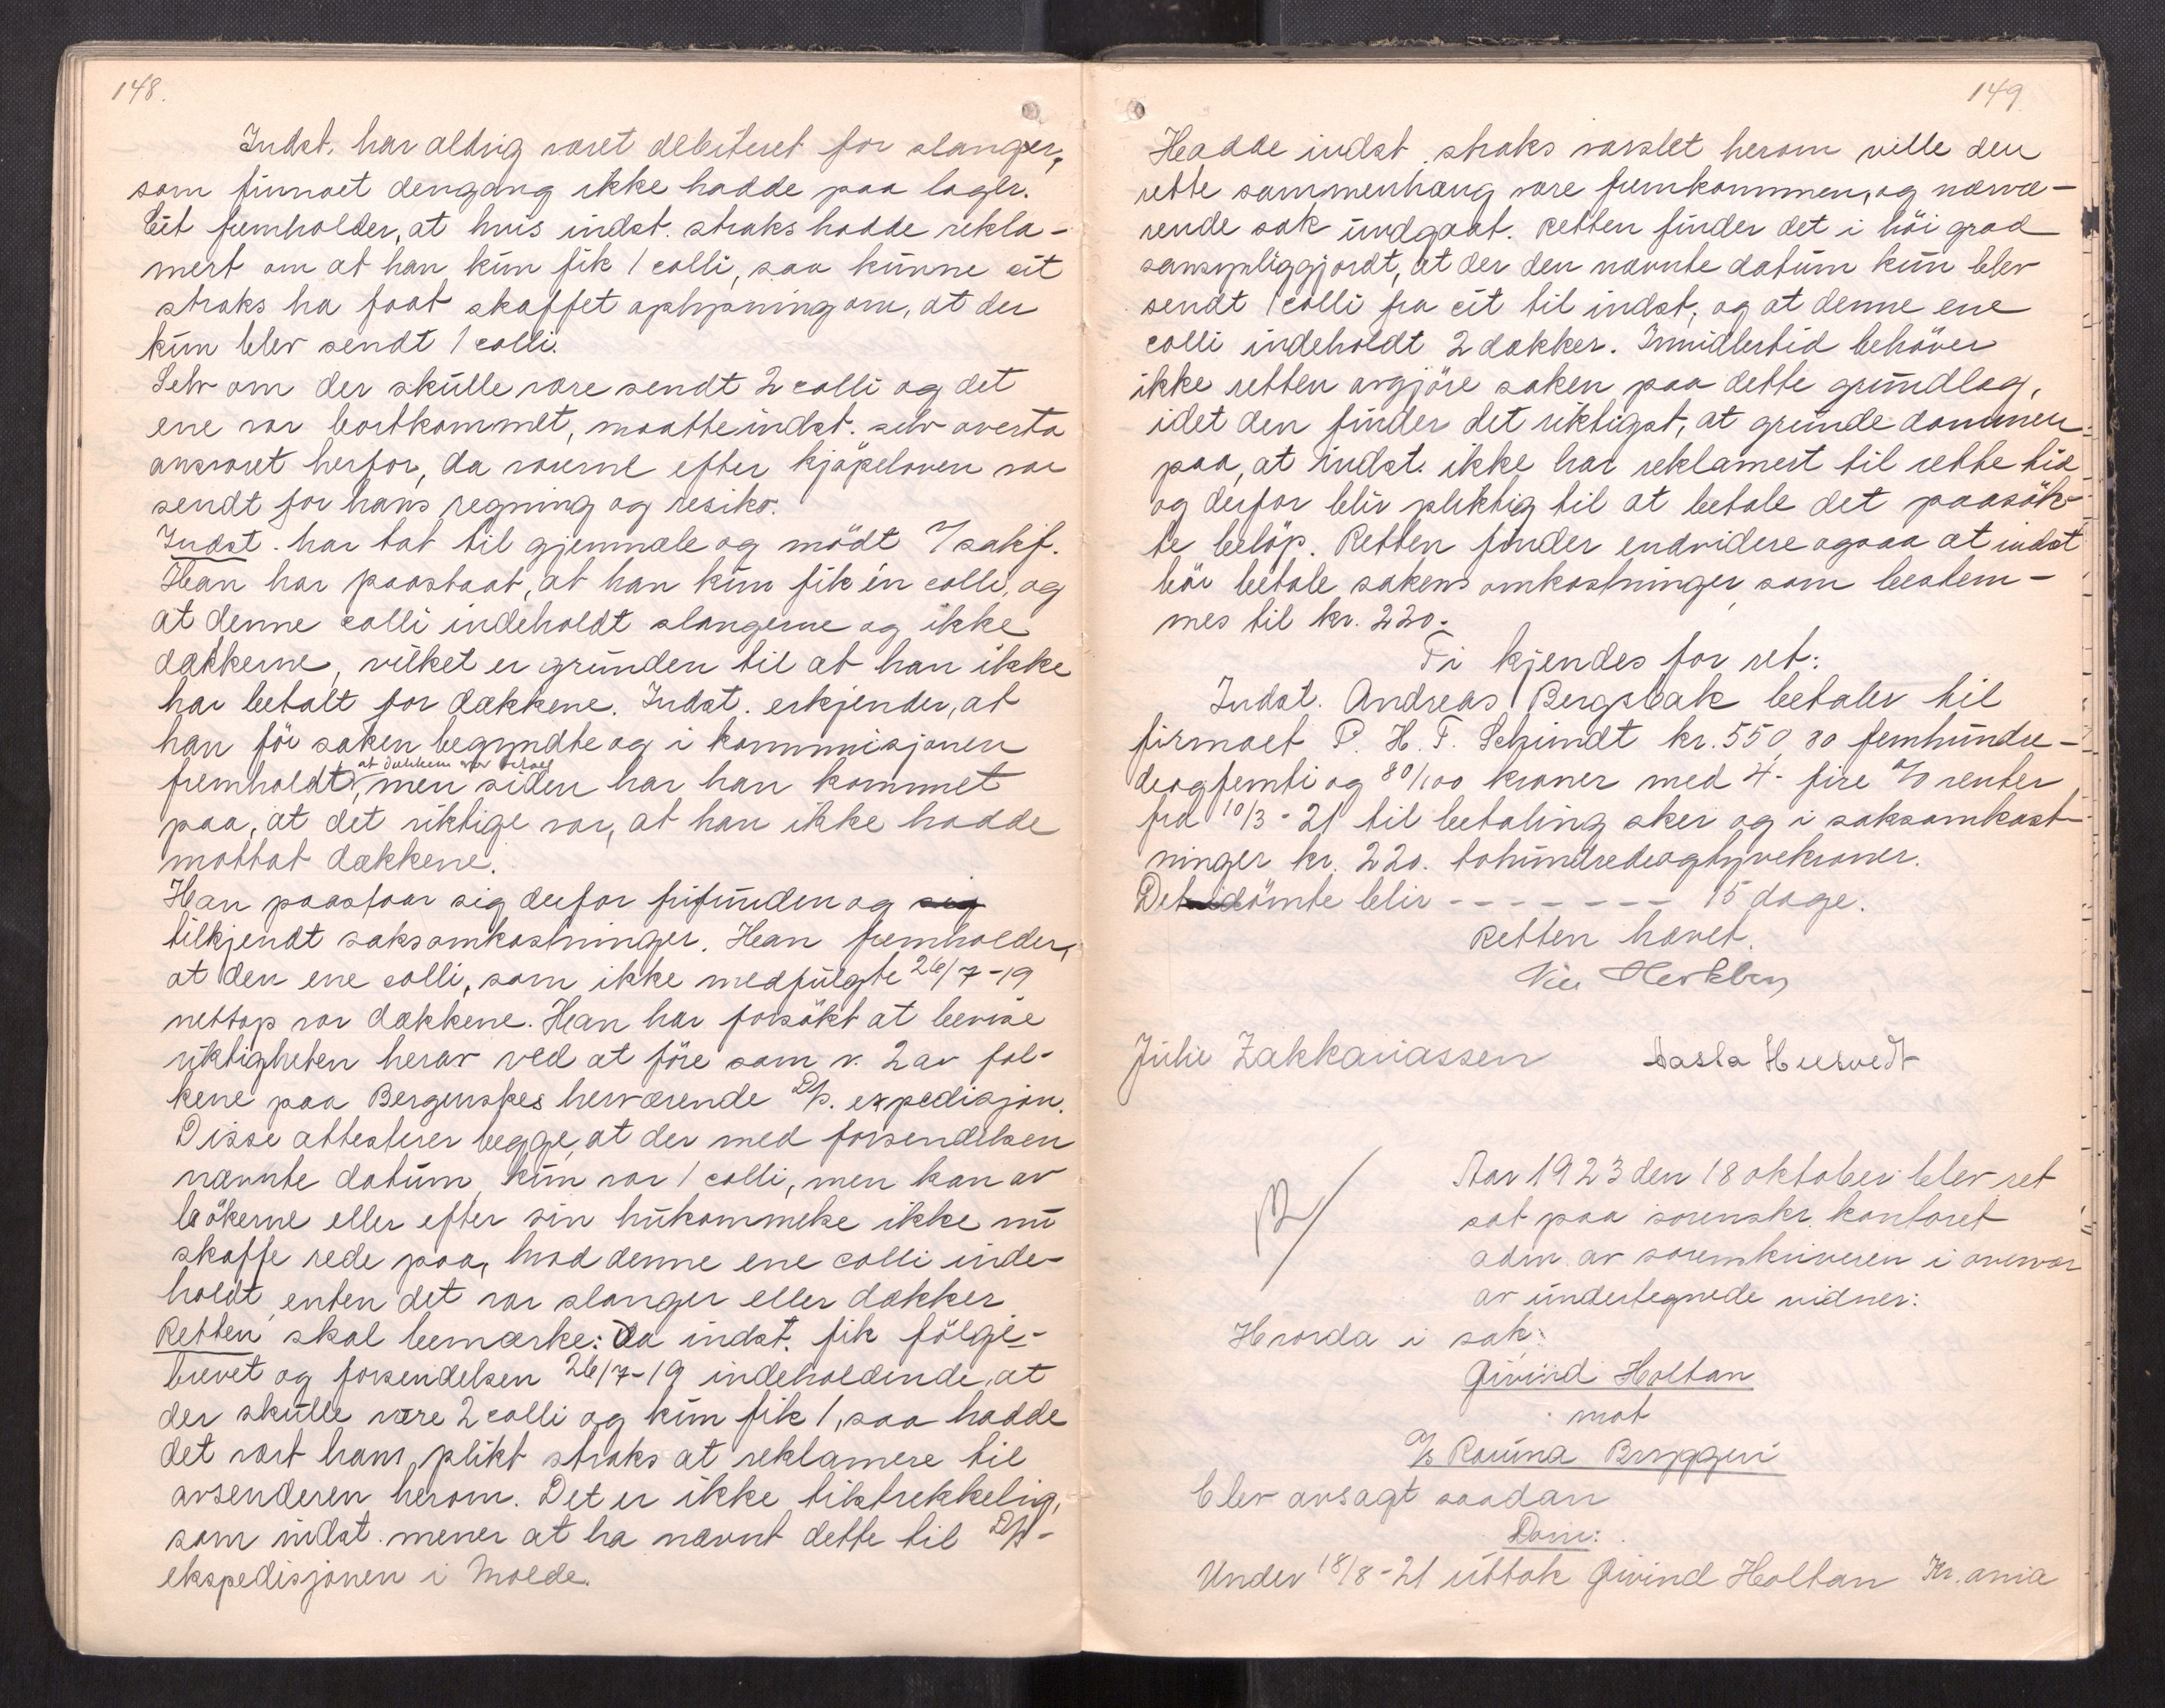 148.
Indst. har aldrig været debiteret for slanger,
som firmaet dengang ikke hadde paa lager.
Cit fremholder, at hvis indst. straks hadde rekla-
mert om at han kun fik 1 colli, saa kunne cit
straks ha faat skaffet oplysning om, at der
kun blev sendt 1 colli.
Selv om der skulle være sendt 2 colli og det
ene var bortkommet, maatte indst. selv overta
ansvaret herfor, da varerne efter kjöpeloven var
sendt for hans regning og resiko.
Indst. har tat til gjenmæle og mödt m/sakf.
Han har paastaat, at han kun fik én colli, og
at denne colli indeholdt slangerne og ikke
dækkerne, vilket er grunden til at han ikke
har betalt for dækkene. Indst. erkjender, at
han för saken begyndte og i kommisjonen
fremholdt at dækkene var betalt, men siden har han kommet
paa, at det riktige var, at han ikke hadde
mottat dækkene.
Han paastaar sig derfor frifunden og sig
tilkjendt saksomkostninger. Han fremholder,
at den ene colli, som ikke medfulgte 26/7-19
nettop var dækkene. Han har forsökt at bevise
riktigheten herav ved at före som v. 2 av fol-
kene paa Bergenskes herværende D/s. expedisjon.
Disse attesterer begge, at der med forsendelsen
nævnte datum kun var 1 colli, men kan av
bökerne eller efter sin hukommelse ikke nu
skaffe rede paa, hvad denne ene colli inde-
holdt, enten det var slanger eller dækker
Retten skal bemærke: Da indst. fik fölge-
brevet og forsendelsen 26/7-19 indeholdende, at
der skulle være 2 colli og kun fik 1, saa hadde
det vært hans plikt straks at reklamere til
avsenderen herom. Det er ikke tilstrekkelig,
som indst. mener at ha nævnt dette til D/s-
ekspedisjonen i Molde.
149.
Hadde indst. straks varslet herom ville den
rette sammenhæng være fremkommen, og nærvæ-
rende sak undgaat. Retten finder det i höi grad
sansynliggjordt, at der den nævnte datum kun blev
sendt 1 colli fra cit til indst, og at denne ene
colli indeholdt 2 dækker. Imidlertid behöver
ikke retten avgjöre saken paa dette grundlag,
idet den finder det riktigst, at grunde dommen
paa, at indst. ikke har reklamert til rette tid
og derfor blir pliktig til at betale det paasök-
te belöp. Retten finder endvidere ogsaa at indst
bör betale sakens omkostninger, som bestem-
mes til kr. 220.-
Ti kjendes for ret:
Indst. Andreas Bergsbak betaler til
firmaet P. H. T. Schmidt kr. 550,80 femhundre-
deogfemti og 80/100 kroner med 4- fire % renter
fra 10/3-21 til betaling sker og i saksomkost-
ninger kr. 220. tohundredeogtyvekroner.
Det idömte blir ------- 15 dage.
Retten hævet.
Julie Zakkariassen
Aar 1923 den 18 oktober blev ret
sat paa sorenskr. kontoret
adm. av sorenskriveren i overvær
av undertegnede vidner:
Hvorda i sak:
Øivind Holtan
mot
A/S Rauma Bryggeri
blev avsagt saadan
Dom:
Under 18/8-21 uttok Øivind Holtan Kr.ania